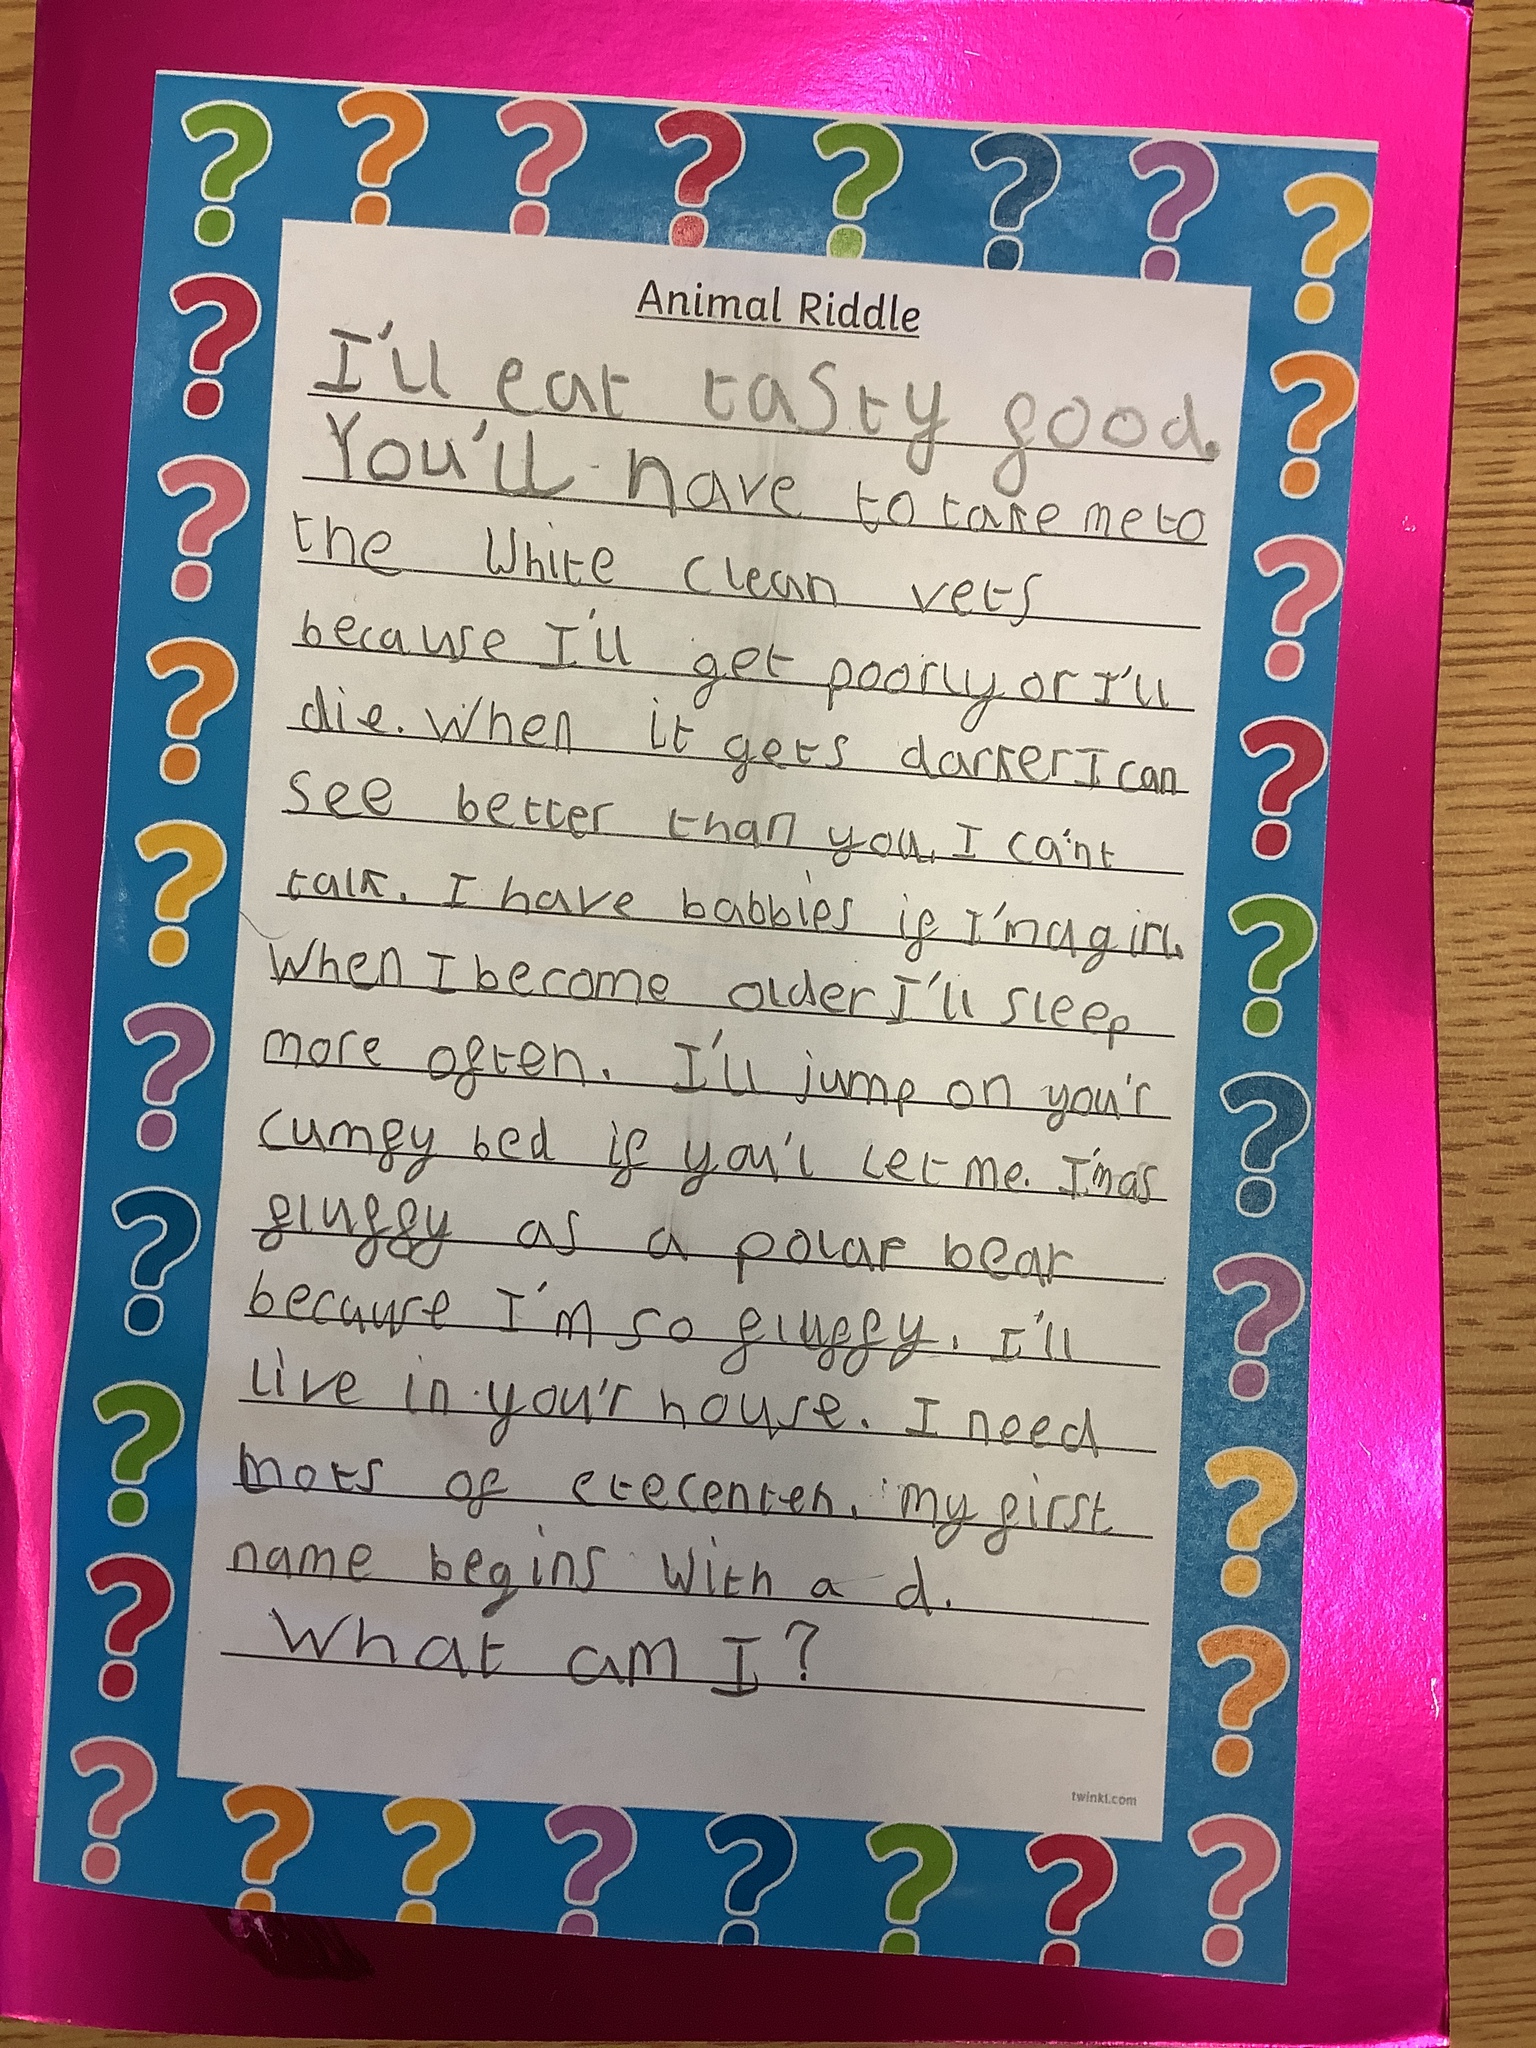 Animal Riddle
I'll eat tasty food.
You'll have to take me to
the white clean vets
because I'll get poorly or I'll
die. When it gets darker I can
see better than you. I ca'nt
talk. I have babbies if I'm a girl.
When I become older I'll sleep
more often. I'll jump on you'r
cumfy bed if you'l let me. I'm as
fluffy as a polar bear
because I'm so fluffy. I'll
live in you'r house. I need
of my first
name begins with a d.
What am I?
twinkl.com